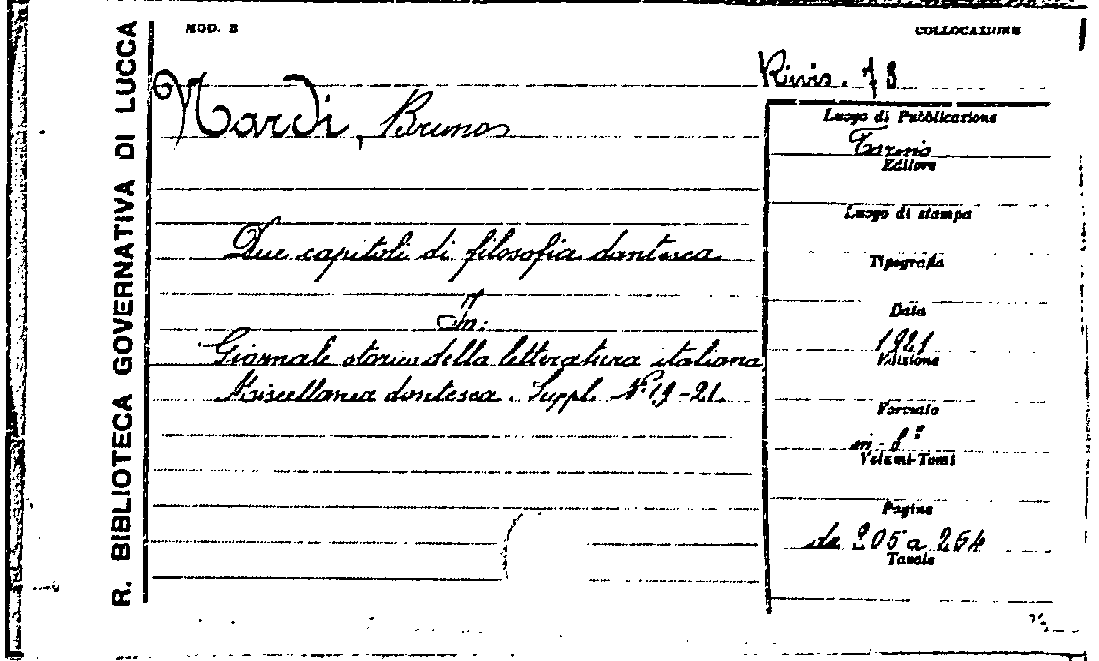 R. BIBLIOTECA GOVERNATIVA DI LUCCA
MOD. B
COLLOCAZIONE
Rivis. 78
Nardi, Bruno
Luogo di Pubblicazione
Torino
Editore
Luogo di stampa
Due capitoli di filosofia dantesca
Tipografia
In:
Data
Giornale storico della letteratura italiana
1921
Edizione
Miscellanea dantesca. Suppl. Nº 19-21.
Formato
in-8º
Volumi-Tomi
Pagine
da 205 a 264
Tavole